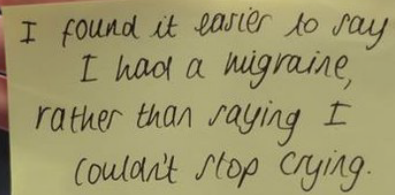 I found it easier to say
I had a migraine,
rather than saying I
couldn't stop crying.